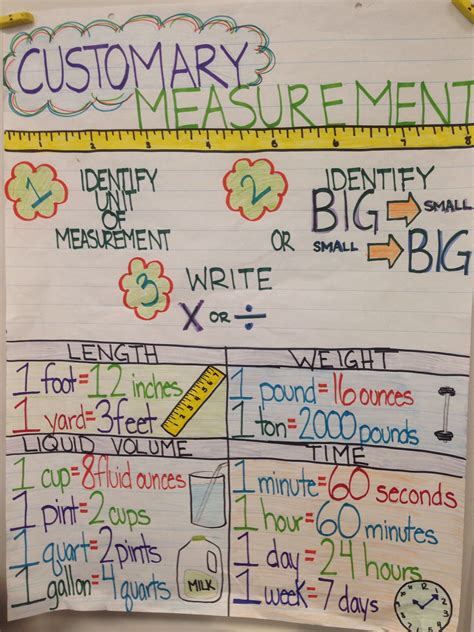 CUSTOMARY
MEASUREMENT
1 2 3 4 5 6 7 8
1 IDENTIFY
UNIT
OF
MEASUREMENT
2 IDENTIFY
BIG SMALL
OR SMALL BIG
3 WRITE
X OR ÷
LENGTH
1 foot=12 inches
1 yard=3feet
WEIGHT
1 pound=16 ounces
1 ton=2000 pounds
LIQUID VOLUME
1 cup=8fluid ounces
1 pint=2 cups
1 quart=2pints
1 gallon=4 quarts
MILK
TIME
1 minute=60 seconds
1 hour=60 minutes
1 day=24 hours
1 week=7 days